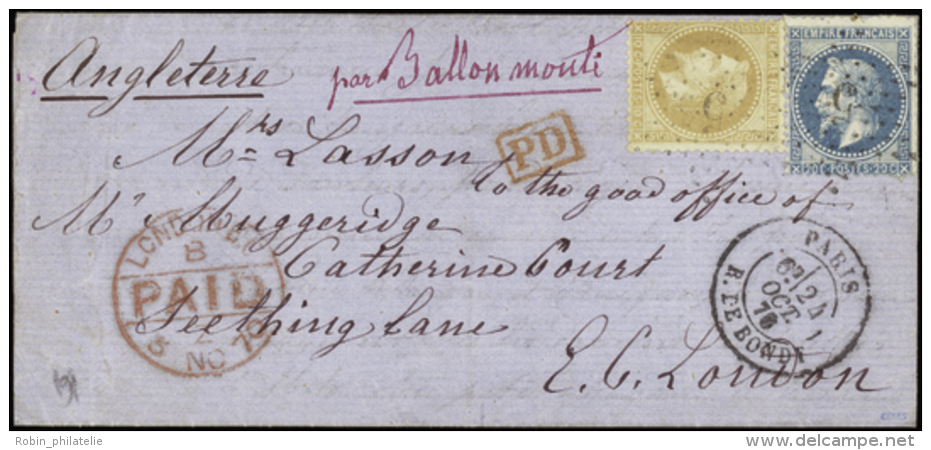 Angleterre
par Ballon monté
EMPIRE FRANÇAIS
20C POSTES 20C
PD
Mrs Lasson
to the good office of
Mr Muggeridge
Catherine Court
Seething lane
E. C. London
LONDON E.C
B
PAID
5 NO 70
PARIS
6E
24
OCT.
70
Robin_philatelie
www.delcampe.net